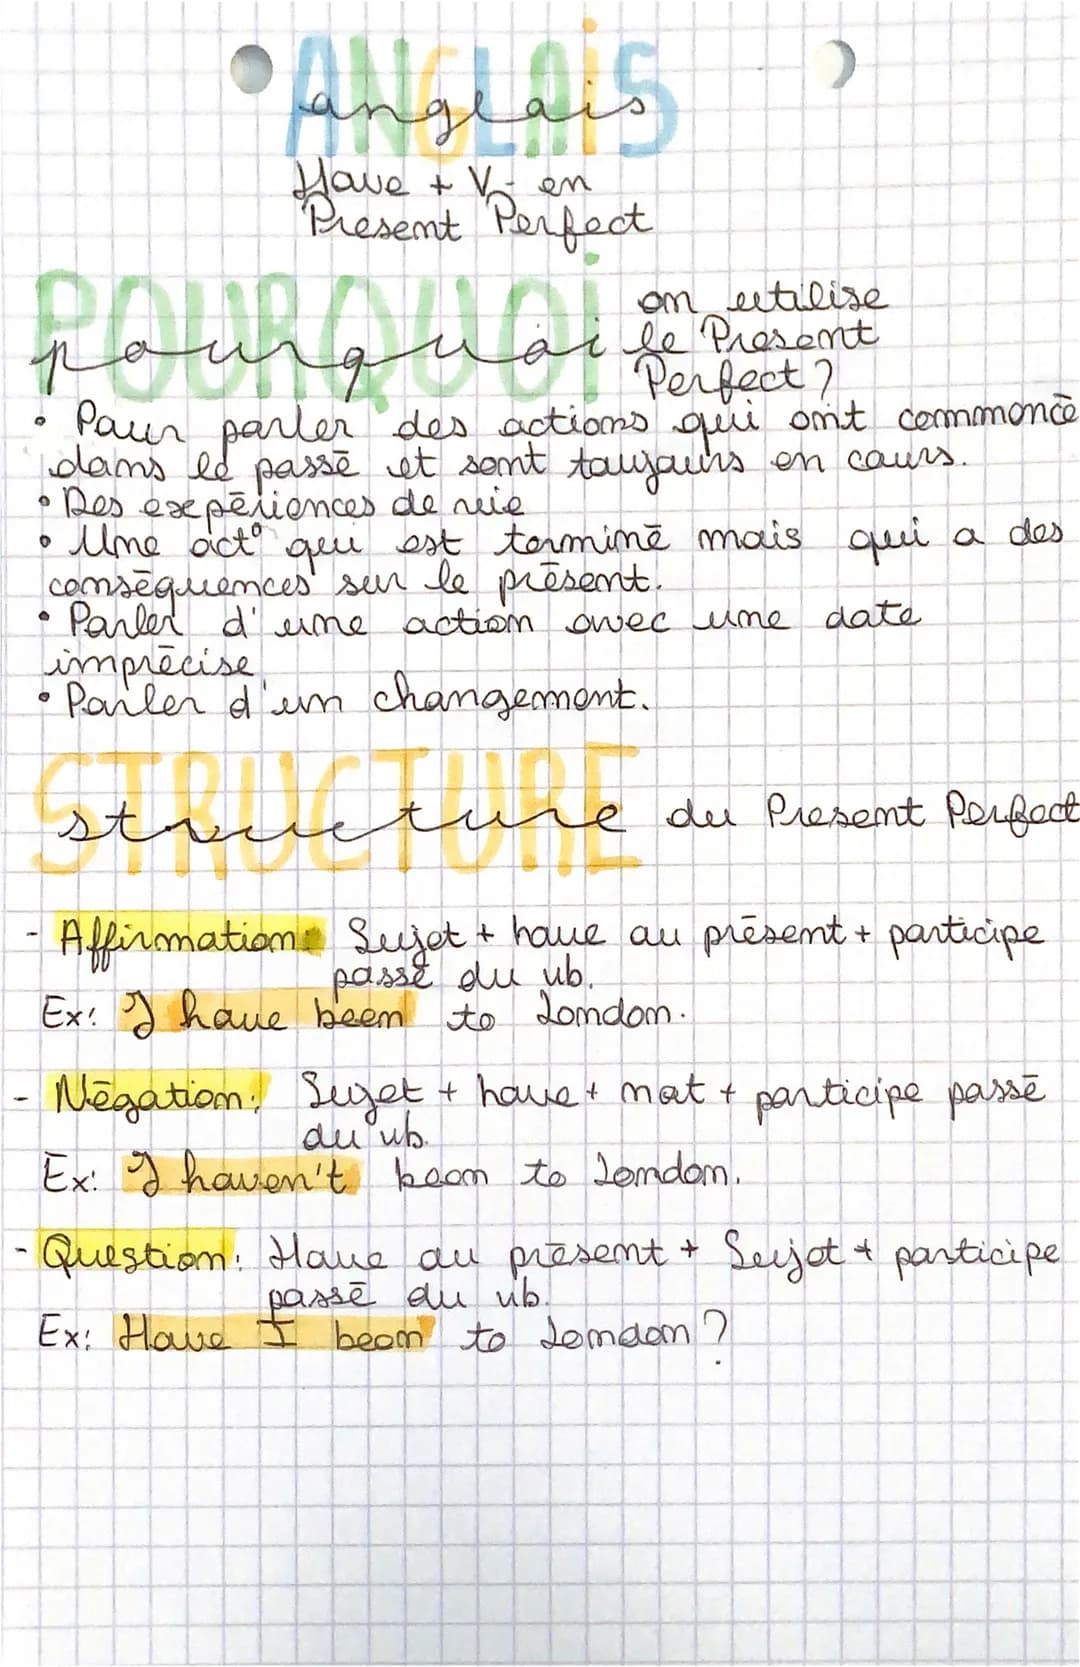 ANGLAIS
anglais
Have + V-en
Present Perfect
POURQUOI
pourquoi on utilise
le Present
Perfect ?
• Pour parler des actions qui ont commencé
dans le passé et sont toujours en cours.
• Des expériences de vie
• Une act° qui est terminé mais qui a des
conséquences sur le présent.
• Parler d'une action avec une date
imprécise
• Parler d'un changement.
STRUCTURE
structure du Present Perfect
- Affirmation: Sujet + have au présent + participe
passé du vb.
Ex: I have been to London.
- Négation: Sujet + have + not + participe passé
du vb.
Ex: I haven't been to London.
- Question: Have au présent + Sujet + participe
passé du vb.
Ex: Have I been to London ?